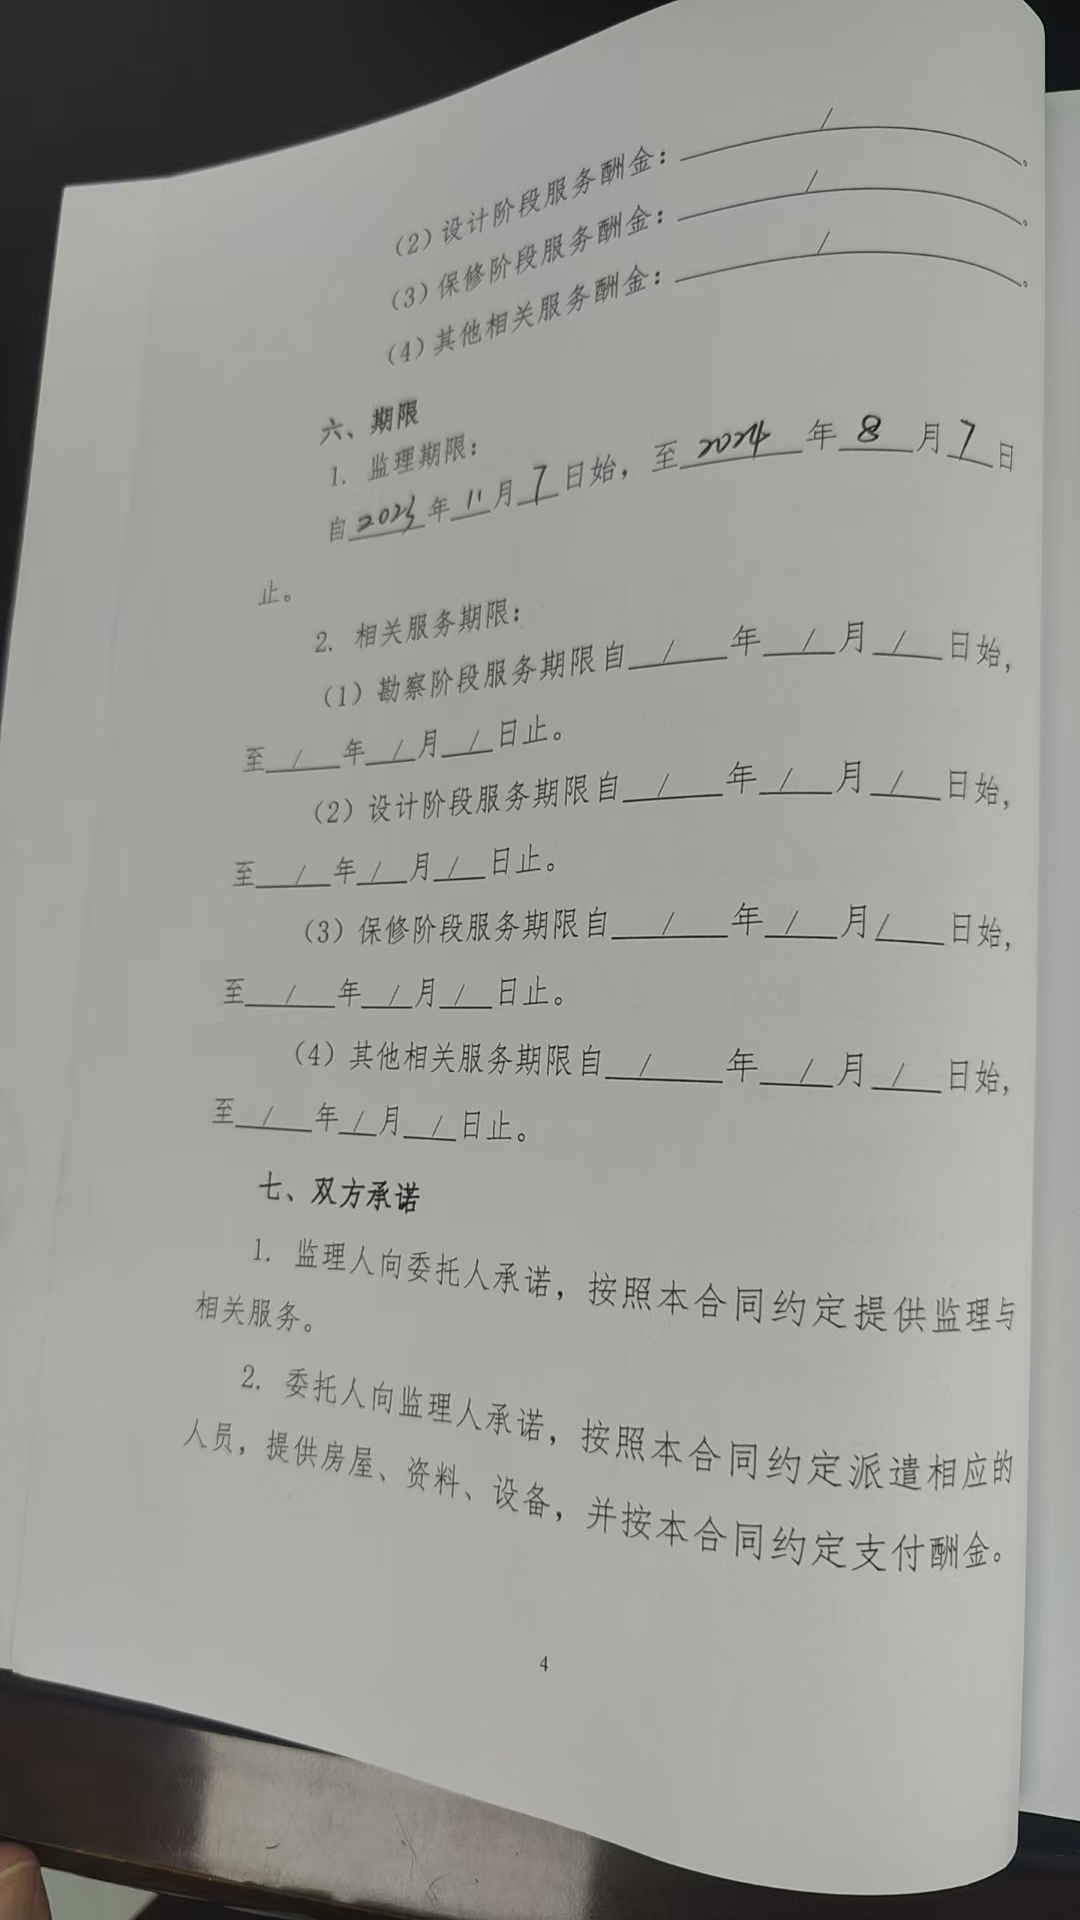 (2)设计阶段服务酬金：/。
(3)保修阶段服务酬金：/。
(4)其他相关服务酬金：/。
六、期限
1. 监理期限：
自2023年11月7日始，至2024年8月7日
止。
2. 相关服务期限：
(1)勘察阶段服务期限自/年/月/日始，
至/年/月/日止。
(2)设计阶段服务期限自/年/月/日始，
至/年/月/日止。
(3)保修阶段服务期限自/年/月/日始，
至/年/月/日止。
(4)其他相关服务期限自/年/月/日始，
至/年/月/日止。
七、双方承诺
1. 监理人向委托人承诺，按照本合同约定提供监理与
相关服务。
2. 委托人向监理人承诺，按照本合同约定派遣相应的
人员，提供房屋、资料、设备，并按本合同约定支付酬金。
4